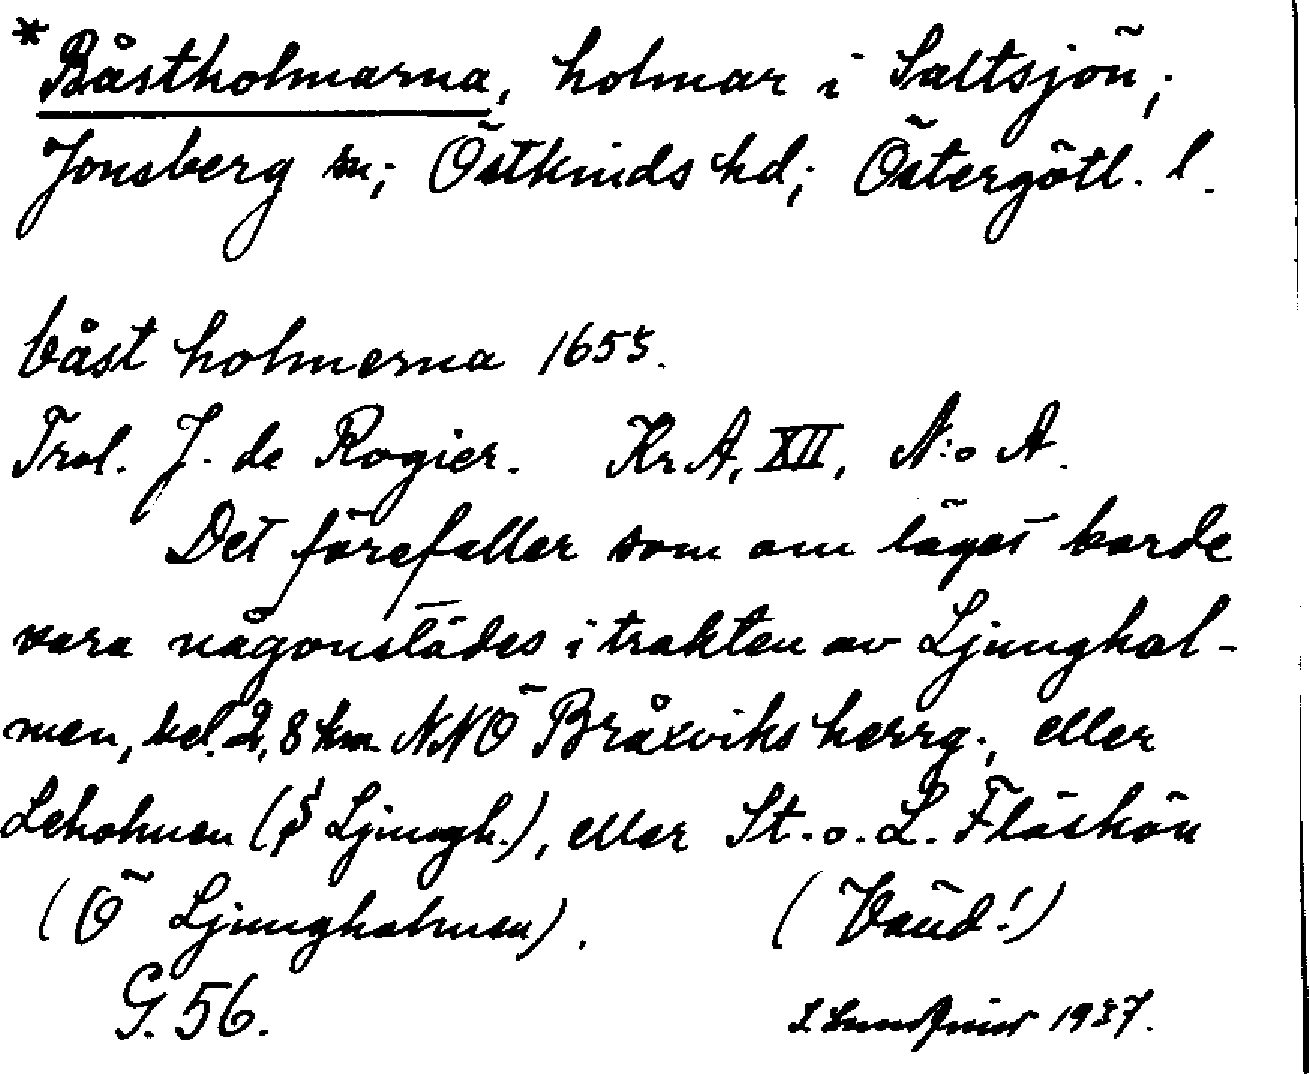 *Båstholmarna, holmar i Saltsjön;
Jonsberg sn; Östkinds hd; Östergötl. l.
båst holmerna 1653.
Trol. J. de Rogier. Kr. A, XII, N:o A.
Det förefaller som om läget borde
vara någonstädes i trakten av Ljunghol-
men, bel. 2,8 km NNÖ Bråxviks herrg., eller
Leholmen (S Ljungh.), eller St. o. L. Fläskön
(Ö Ljungholmen). (Vänd!)
G. 56. 1937.